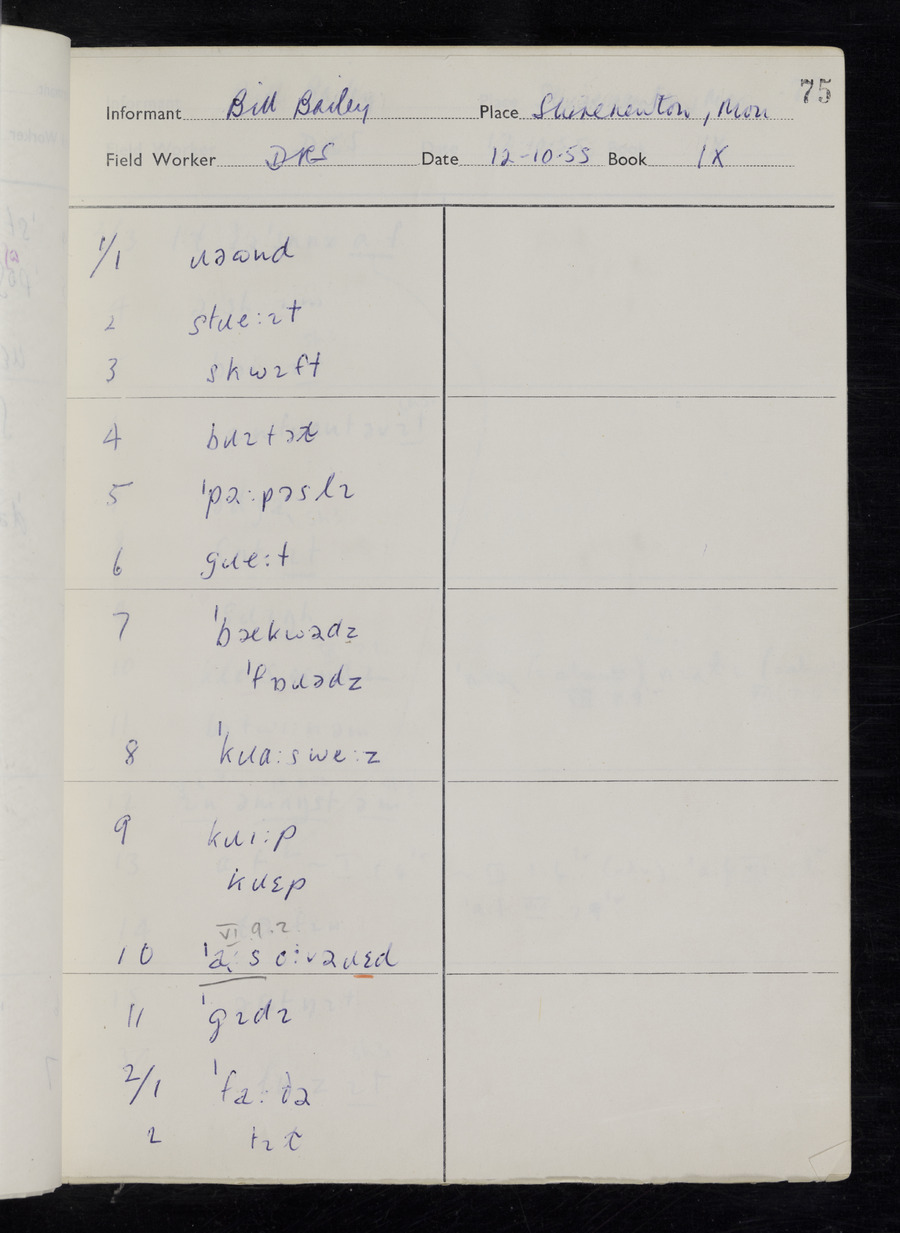 75
Informant Bill Bailey Place Shirenewton, Mon
Field Worker DRS Date 12-10-55 Book IX
1/1 ɹəʊnd
2 stɹe:ɪt
3 skwɪft
4 bɹɪtət
5 ˈpə:pəslɪ
6 gɹe:t
7 ˈbækwədz
ˈfɒɹədz
8 ˈkɹa:swe:z
9 kɹi:p
kɹɛp
VI 9.2
10
11 ˈgɪdɪ
2/1 ˈfa:ðə
2